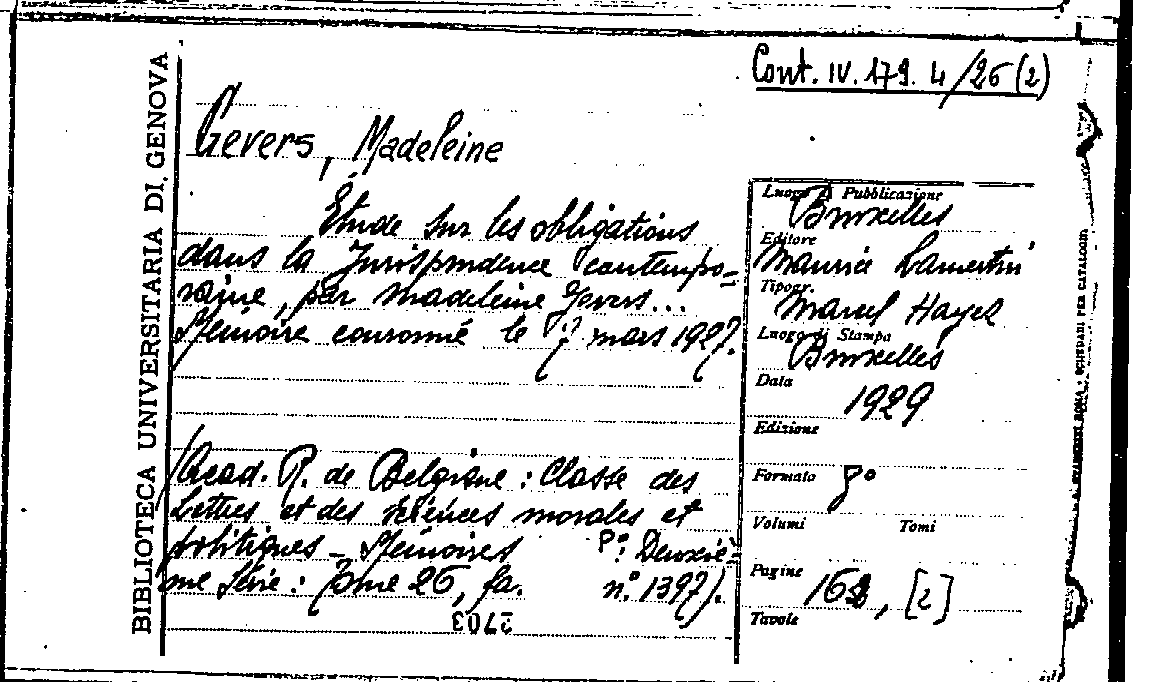 Cont. IV. 179. 4/26 (2)
BIBLIOTECA UNIVERSITARIA DI GENOVA
Gevers, Madeleine
Étude sur les obligations
dans la Jurisprudence contempo-
raine, par Madeleine Gevers...
Mémoire couronné le 7 mars 1927.
(Acad. R. de Belgique : Classe des
lettres et des sciences morales et
politiques - Mémoires Deuxiè-
me Série : Tome 26, fa. n.° 1397).
2703
Luogo di Pubblicazione
Bruxelles
Editore
Maurice Lamertin
Tipogr.
Marcel Hayez
Luogo di Stampa
Bruxelles
Data
1929
Edizione
Formato 8°
Volumi Tomi
Pagine 162, [2]
Tavole
SCHEDARI PER CATALOGHI